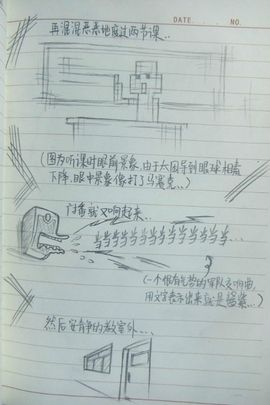 DATE. . . . . NO.
再混混恶恶地度过两节课..
(因为听课时眼前景象,由于太困导到眼球相素
下降,眼中景象像打了马赛克...)
门铃就又响起来...
当当当当当当当当当当当...
(一个很有气势的军队交响曲,
用文字表示出来就是
然后安静的教室外...